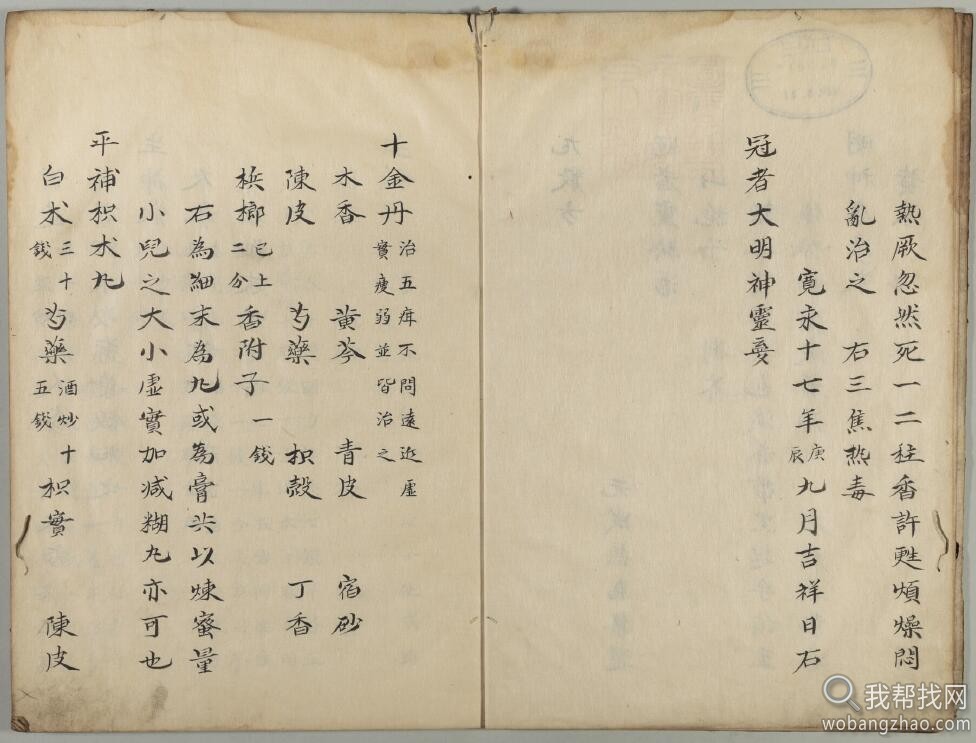 熱厥忽然死一二炷香許甦煩燥悶
亂治之　右三焦热毒
寛永十七年庚辰九月吉祥日石
冠者大明神靈
十金丹治五疳不問遠近虛實瘦弱並皆治之
木香　黄芩　青皮　宿砂
陳皮　芍藥　枳殻　丁香
梹榔已上二分香附子一錢
右為細末為丸或為膏共以煉蜜量
小兒之大小虛實加減糊丸亦可也
平補枳术丸
白术三十錢芍藥酒炒十五錢枳實　陳皮
我帮找网
wobangzhao.com